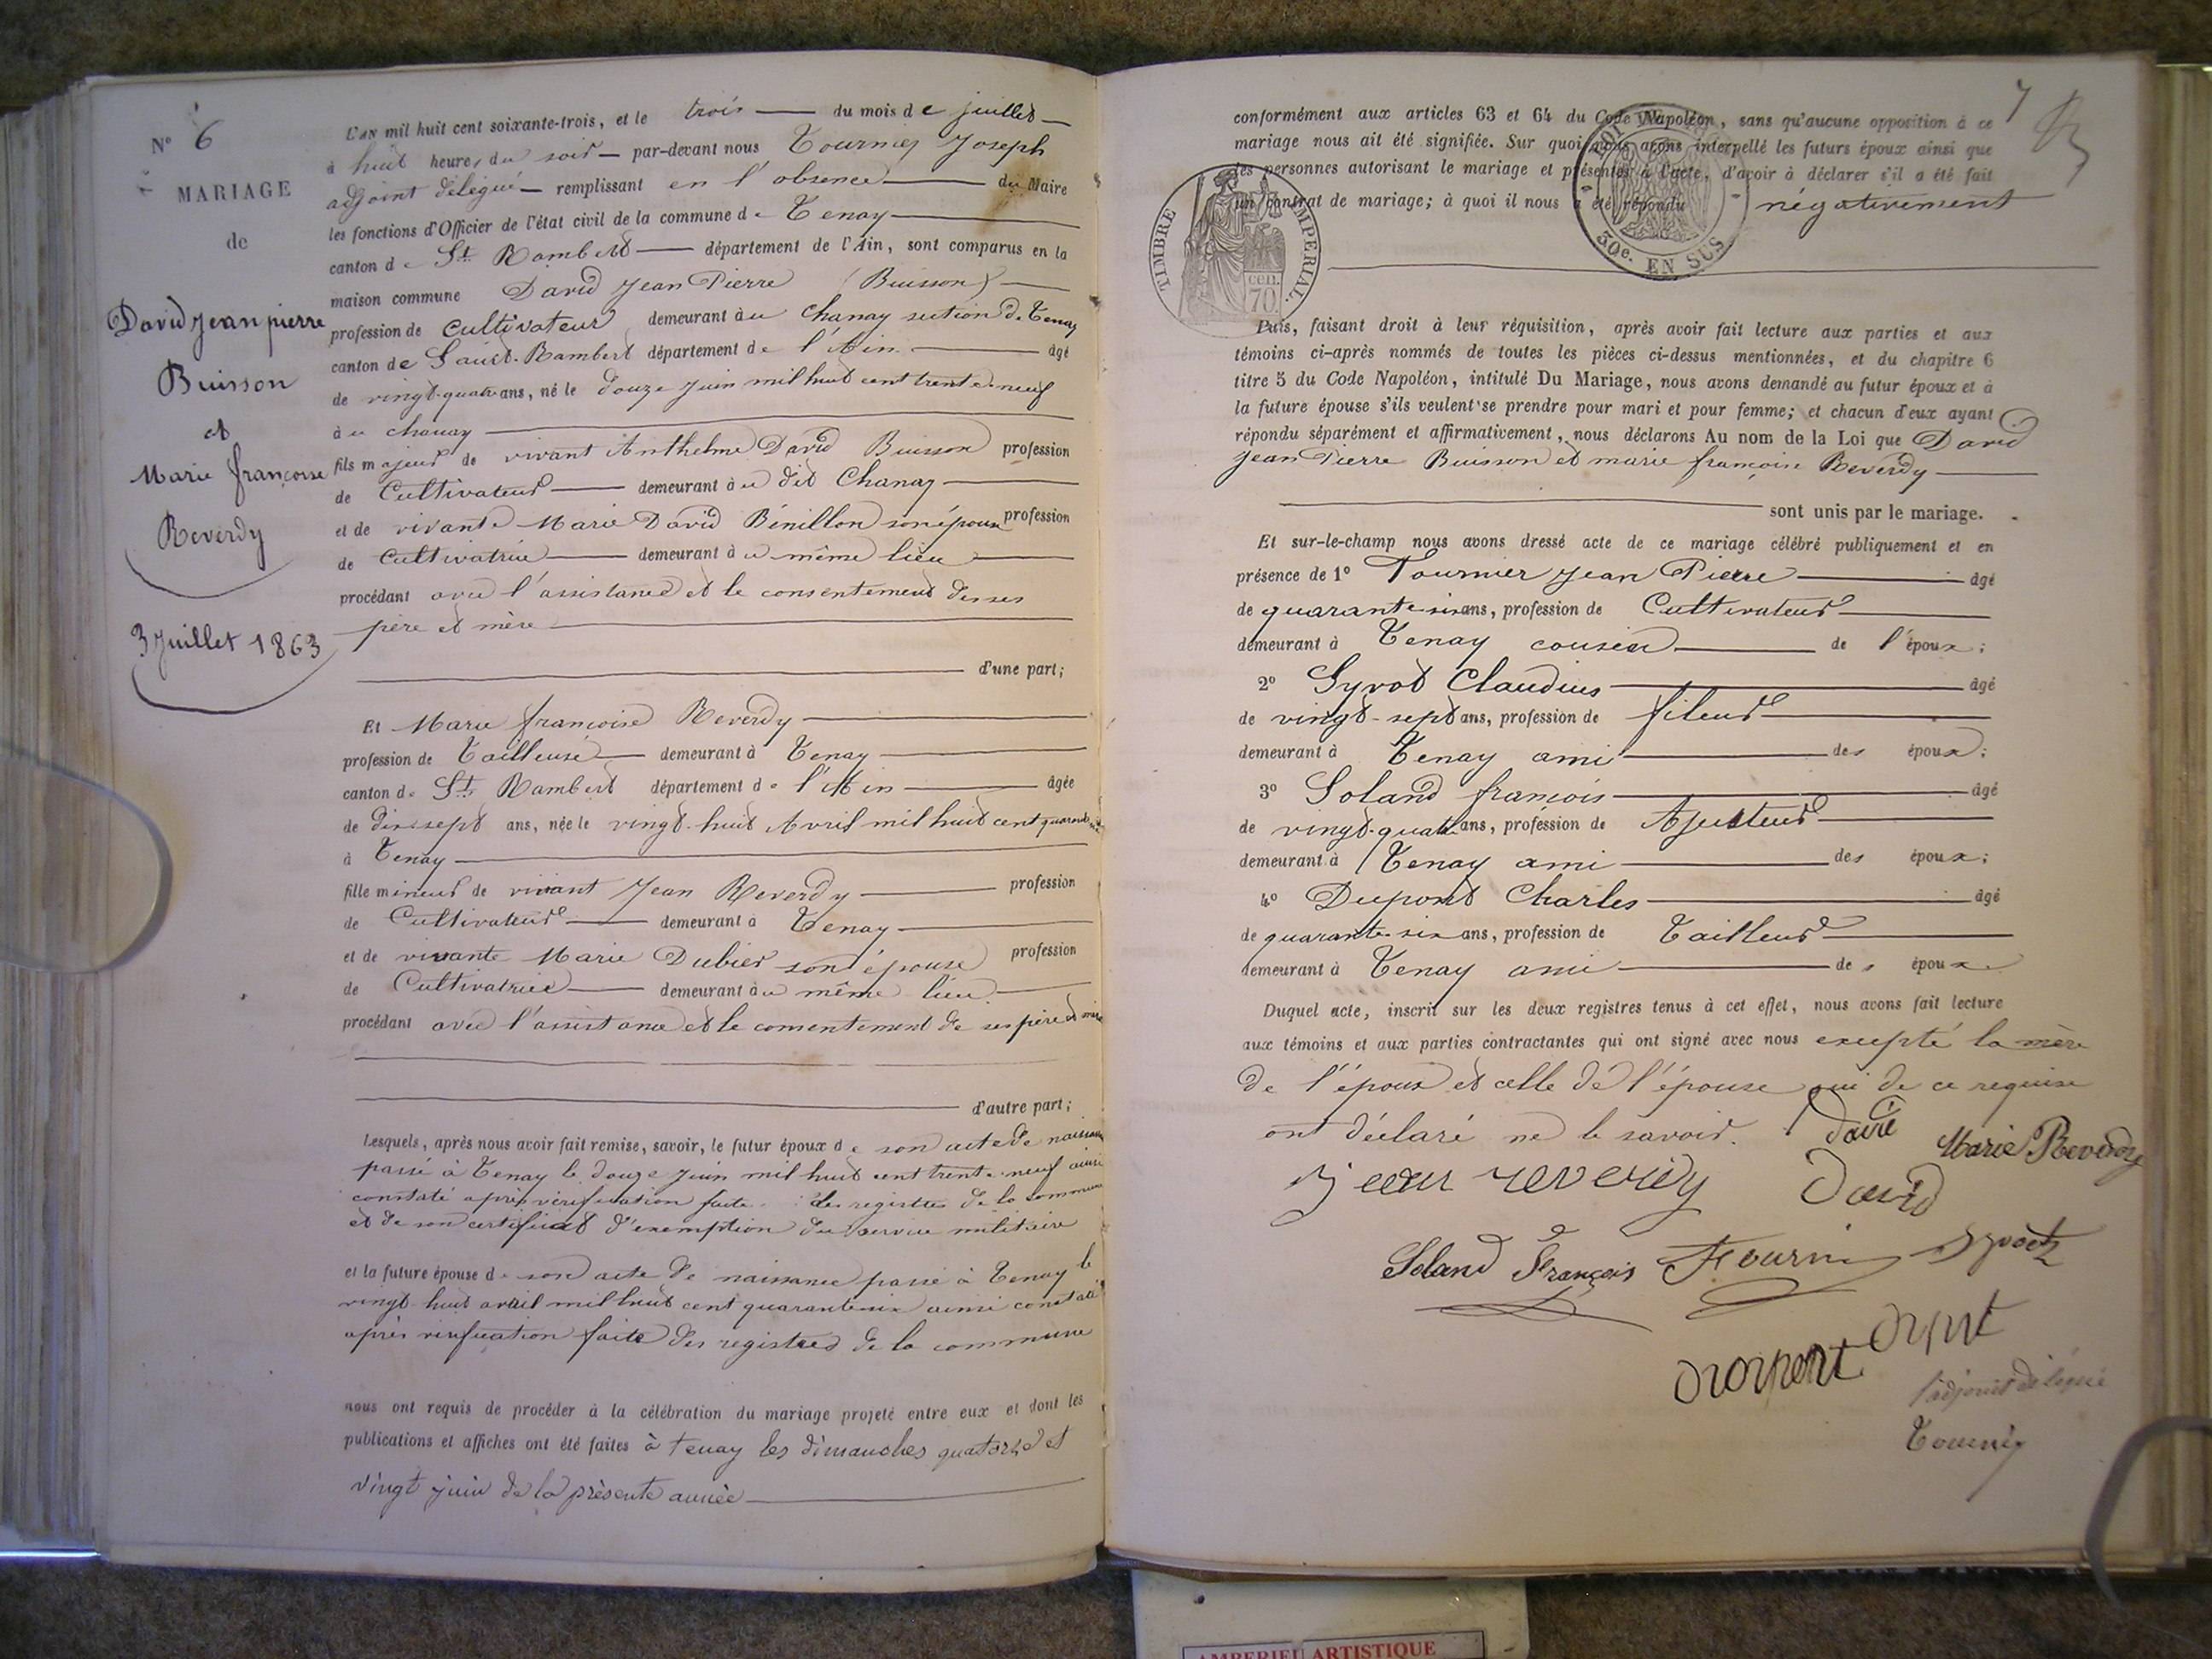 N° 6
MARIAGE
de
David jean pierre
Buisson
et
Marie françoise
Reverdy
3 Juillet 1863
L'AN mil huit cent soixante-trois, et le trois du mois de juillet
à huit heures du soir par-devant nous Tournier Joseph
adjoint délégué remplissant en l'absence du Maire
les fonctions d'Officier de l'état civil de la commune de Tenay
canton de St Rambert département de l'Ain, sont comparus en la
maison commune David Jean Pierre (Buisson)
profession de cultivateur demeurant au Chanay section de Tenay
canton de Saint-Rambert département de l'Ain âgé
de vingt-quatre ans, né le douze Juin mil huit cent trente-neuf
à u chanay
fils majeur de vivant Anthelme David Buisson profession
de Cultivateur demeurant à u dit Chanay
et de vivante Marie David Bénillon son épouse profession
de Cultivatrice demeurant à u même lieu
procédant avec l'assistance et le consentement de ses
père et mère
d'une part;
Et Marie françoise Reverdy
profession de Tailleuse demeurant à Tenay
canton de St Rambert département de l'Ain âgée
de dix sept ans, née le vingt-huit Avril mil huit cent quarante six
à Tenay
fille mineur de vivant Jean Reverdy profession
de Cultivateur demeurant à Tenay
et de vivante Marie Dubier son épouse profession
de Cultivatrice demeurant à u même lieu
procédant avec l'assistance et le consentement de ses père et mère
d'autre part;
Lesquels, après nous avoir fait remise, savoir, le futur époux de son acte de naissance
passé à Tenay le douze Juin mil huit cent trente-neuf ainsi
constaté après vérification faite des registres de la commune
et de son certificat d'exemption du service militaire
et la future épouse de son acte de naissance passé à Tenay le
vingt-huit avril mil huit cent quarante six ainsi constaté
après vérification faite des registres de la commune
nous ont requis de procéder à la célébration du mariage projeté entre eux et dont les
publications et affiches ont été faites à tenay les dimanches quatorze et
vingt juin de la présente année
7
conformément aux articles 63 et 64 du Code Napoléon, sans qu'aucune opposition à ce
mariage nous ait été signifiée. Sur quoi nous avons interpellé les futurs époux ainsi que
les personnes autorisant le mariage et présentes à l'acte, d'avoir à déclarer s'il a été fait
un contrat de mariage; à quoi il nous a été répondu négativement
TIMBRE IMPERIAL
cen.
70.
50e. EN SUS
Puis, faisant droit à leur réquisition, après avoir fait lecture aux parties et aux
témoins ci-après nommés de toutes les pièces ci-dessus mentionnées, et du chapitre 6
titre 5 du Code Napoléon, intitulé Du Mariage, nous avons demandé au futur époux et à
la future épouse s'ils veulent se prendre pour mari et pour femme; et chacun d'eux ayant
répondu séparément et affirmativement, nous déclarons Au nom de la Loi que David
Jean Pierre Buisson et marie françoise Reverdy
sont unis par le mariage.
Et sur-le-champ nous avons dressé acte de ce mariage célébré publiquement et en
présence de 1° Tournier Jean Pierre âgé
de quarante six ans, profession de Cultivateur
demeurant à Tenay cousin de l'époux;
2° Gyrod Claudius âgé
de vingt-sept ans, profession de fileur
demeurant à Tenay ami des époux;
3° Soland françois âgé
de vingt-quatre ans, profession de Ajusteur
demeurant à Tenay ami des époux;
4° Dupont Charles âgé
de quarante-six ans, profession de Tailleur
demeurant à Tenay ami des époux
Duquel acte, inscrit sur les deux registres tenus à cet effet, nous avons fait lecture
aux témoins et aux parties contractantes qui ont signé avec nous excepté la mère
de l'époux et celle de l'épouse qui de ce requise
ont déclaré ne le savoir. david
Marie Reverdy
jean reverdy David
Soland François
l'adjoint délégué
Tournier
AMBERIEU ARTISTIQUE